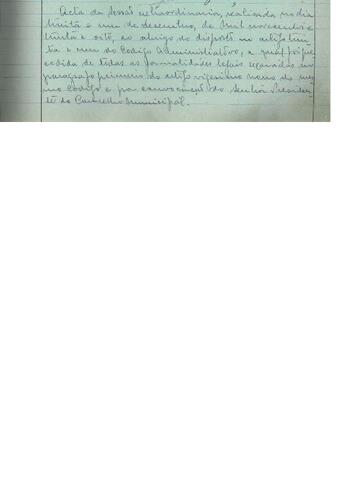 Acta da sessão extraordinaria, realizada no dia
trinta e um de dezembro, de mil novecentos e
trinta e oito, ao abrigo do disposto no artigo trin
ta e um do Codigo Administrativo, a qual foi pre
cedida de todas as formalidades legais exaradas no
paragrafo primeiro do artigo vigesimo nono do mes
mo Codigo e por convocação do Senhor Presiden
te do Concelho Municipal.